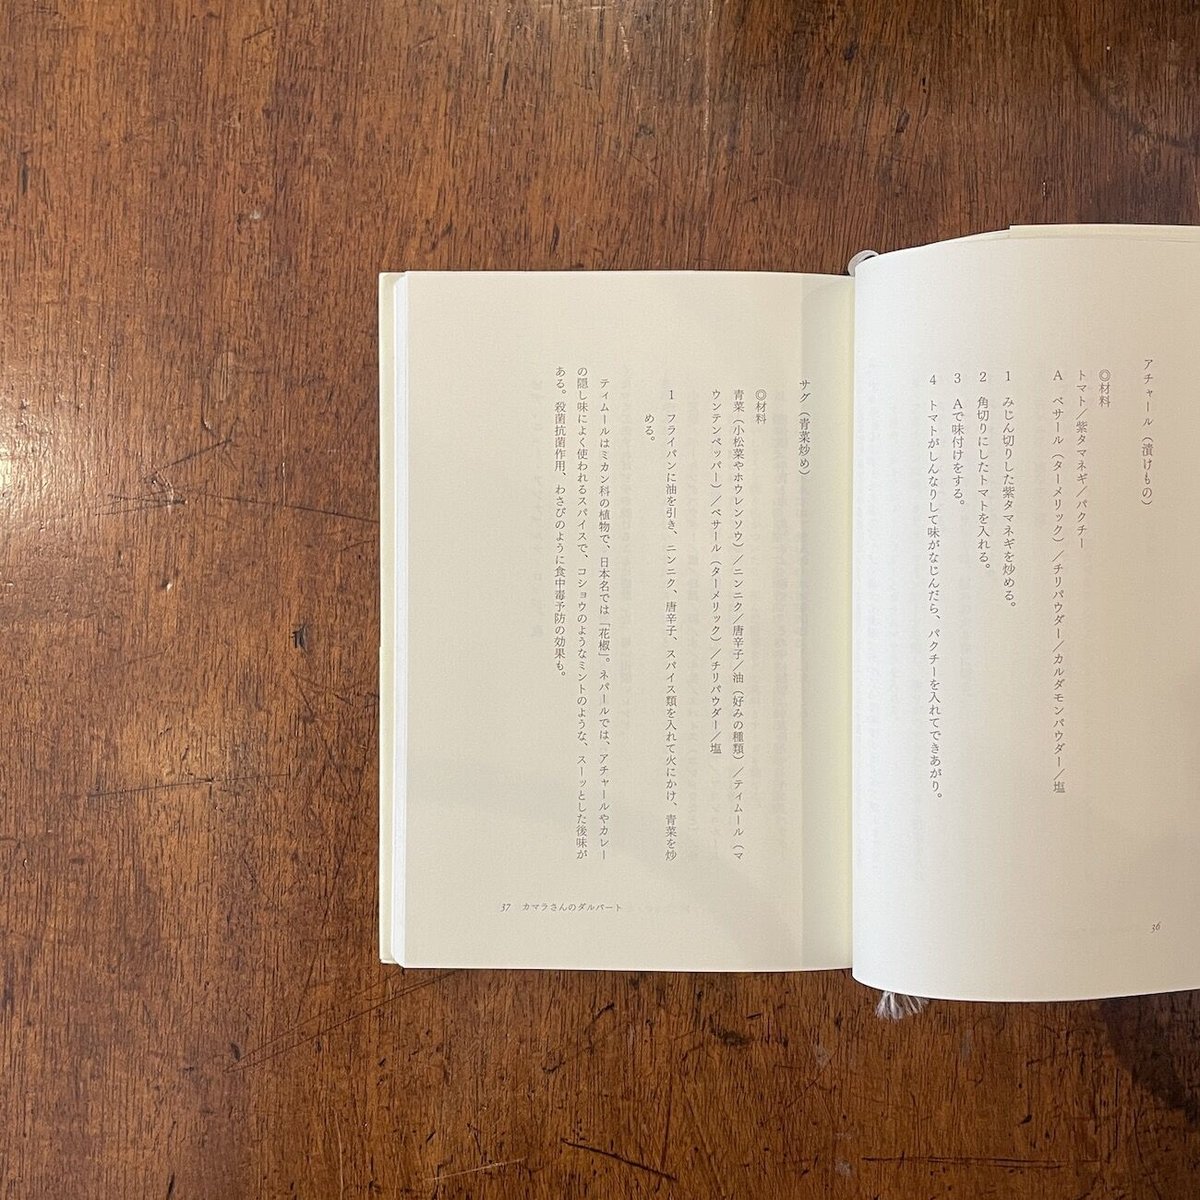 アチャール（漬けもの）
◎材料
トマト／紫タマネギ／パクチー
A ベサール（ターメリック）／チリパウダー／カルダモンパウダー／塩
1 みじん切りした紫タマネギを炒める。
2 角切りにしたトマトを入れる。
3 Aで味付けをする。
4 トマトがしんなりして味がなじんだら、パクチーを入れてできあがり。
36
サグ（青菜炒め）
◎材料
青菜（小松菜やホウレンソウ）／ニンニク／唐辛子／油（好みの種類）／ティムール（マ
ウンテンペッパー）／ベサール（ターメリック）／チリパウダー／塩
1 フライパンに油を引き、ニンニク、唐辛子、スパイス類を入れて火にかけ、青菜を炒
める。
ティムールはミカン科の植物で、日本名では「花椒」。ネパールでは、アチャールやカレー
の隠し味によく使われるスパイスで、コショウのようなミントのような、スーッとした後味が
ある。殺菌抗菌作用、わさびのように食中毒予防の効果も。
37 カマラさんのダルバート